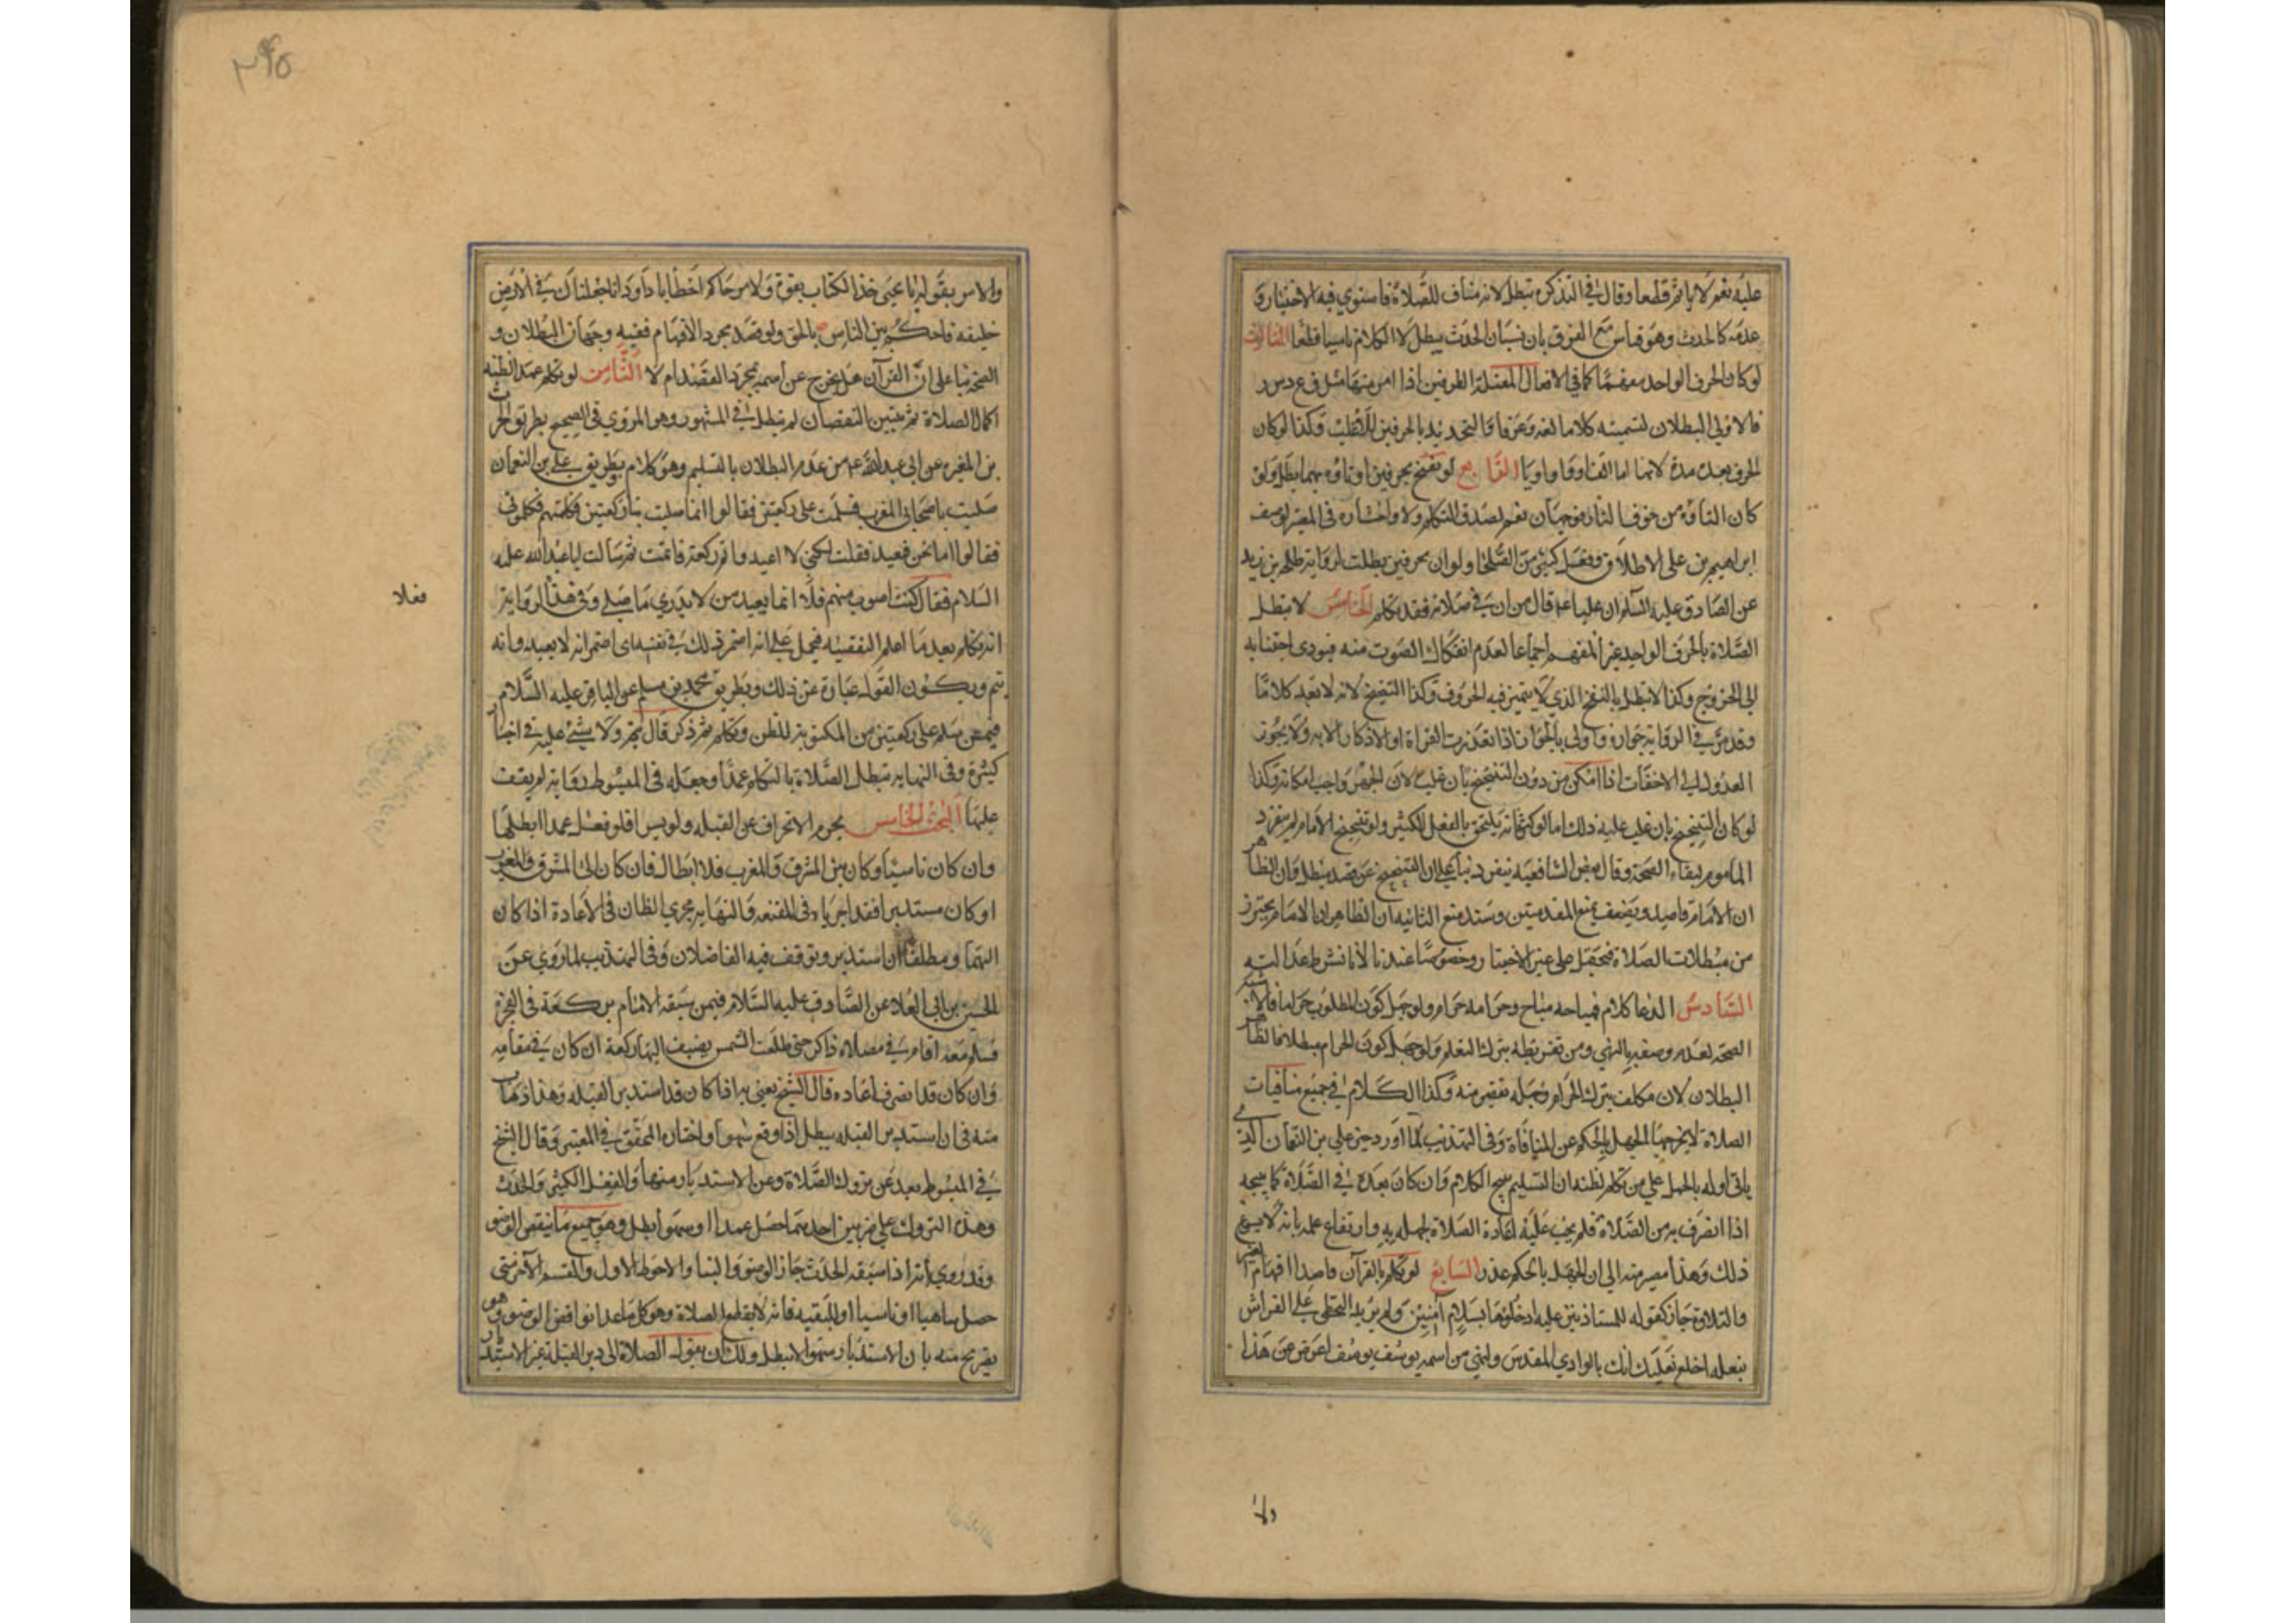 عليه نعم لا ياثم قطعا وقال في التذكرة تبطل لانه مناف للصلاة فاستوي فيه الاختيار و
عدمه كالحدث وهو قياس مع الفرق بان نسيان الحدث يبطل لا الكلام ناسيا قطعا الثالث
لو كان الحرف الواحد مفهما كما في الافعال المعتلة الطرفين اذا امر منها مثل ق ع د س ر
فالاولي البطلان لتسميته كلاما لغة وعرفا والتحديد بالحرفين للاغلب وكذا لو كان
الحرف بعده مدة لانها اما الف او واو او يا الرابع لو تنحنح بحرفين او تاوه بهما بطل ولو
كان التاوه من خوف النار فوجهان نعم لصدق التكلم ولا واختاره في المعتبر لوصف
ابراهيم به على الاطلاق وفعل كثير من الصلحا ولو ان بحرفين بطلت لرواية طلحة بن زيد
عن الصادق عليه السلم ان عليا عه قال من ان في صلاته فقد تكلم الخامس لا تبطل
الصلاة بالحرف الواحد غير المفهم اجماعا لعدم انفكاك الصوت منه فيودي اجتنابه
الى الحروج وكذا لا تبطل بالنفخ الذي لا يتميز فيه الحروف وكذا التنحنح لانه لا يعد كلاما
وقد مر في الرواية جوازه واولى بالجواز اذا تعذرت القراة او الاذكار الا به ولا يجوز
العدول الى الاخفات اذا امكن من دون التنحنح بان غلب لان الجهر واجب مع امكانه وكذا
لو كان التنحنح بان غلب عليه ذلك اما لو كثر فانه يلتحق بالفعل الكثير ولو تنحنح الامام لم ينفرد
الماموم لبقاء الصحة وقال بعض الشافعيه ينفرد بناء على ان التنحنح عن قصد مبطل وان الظاهر
ان الامام قاصد ويضعف بمنع المقدمتين وسند منع الثانيه ان الظاهر ان الامام يحترز
من مبطلات الصلاة فيحمل على غير الاختيار وخصوصا عندنا لانا نشترط عدالته
السادس الدعا كلام فمباحه مباح وحرامه حرام ولو جهل كون المطلوب حراما فالاقرب
الصحة لعدم وصفه بالنهي ومن تفريطه بترك التعلم ولو جهل كون الحرام مبطلا فالظاهر
البطلان لان مكلف بترك الحرام وجهله تقصير منه وكذا الكلام في جميع منافيات
الصلاة لا يخرجها الجهل بالحكم عن المنافاة وفي التهذيب لما اورد خبر علي بن النعمان الذي
ياتي اوله بالحمل على من تكلم لظنه ان التسليم يبيح الكلام وان كان بعده في الصلاة كما يبيحه
اذا انصرف به من الصلاة فلم يجب عليه اعادة الصلاة لجهله به وارتفاع علمه بانه لا يسوغ
ذلك وهذا مصير منه الى ان الجهل بالحكم عذر السابع لو تكلم بالقرآن قاصدا افهام الغير
والتلاوة جاز كقوله للمستاذنين عليه ادخلوها بسلام آمنين ولم يريد التخطي على الفراش
بنعله اخلع نعليك انك بالوادي المقدس ولمن من اسمه يوسف يوسف اعرض عن هذا
والامر بقوله يا يحيى خذ الكتاب بقوة ولامر حاكم اخطا يا داود انا جعلناك في الارض
خليفة فاحكم بين الناس بالحق ولو قصد مجرد الافهام ففيه وجهان البطلان و
الصحة بناء على ان القرآن هل يخرج عن اسمه بمجرد القصد ام لا الثامن لو تكلم عمدا لظنه
اكمال الصلاة ثم تبين النقصان لم تبطل في المشهور وهو المروي في الصحيح بطريق الحرث
بن المغيرة عن ابي عبد الله عه من عدم البطلان بالتسليم وهو كلام بطريق علي بن النعمان
صليت باصحابي المغرب فسلمت على ركعتين فقالوا انما صليت بنا ركعتين فكلمتهم فكلموني
فقالوا اما نحن فنعيد فقلت لكني لا اعيد واتم ركعة فاتممت ثم سالت ابا عبد الله عليه
السلام فقال كنت اصوب منهم فعلا انما يعيد من لا يدري ما صلى وفي هذه الرواية
انه تكلم بعد ما اعلم النقيصه فيحمل على انه اضمر ذلك في نفسه اي اضمر انه لا يعيد وانه
يتم ويكون القول عبارة عن ذلك وبطريق محمد بن مسلم عن الباقر عليه السلام
فيمن سلم على ركعتين من المكتوبة للظن وتكلم ثم ذكر قال يتم ولا شيء عليه في اخبار
كثيرة وفي النهاية تبطل الصلاة بالتكلم عمدا وجعله في المبسوط رواية لم يقف
عليها البحث الخامس يحرم الانحراف عن القبلة ولو يسيرا فلو فعل عمدا ابطلها
وان كان ناسيا وكان بين المشرق والمغرب فلا ابطال وان كان الى المشرق والمغرب
او كان مستدبرا فقد اجرياه في المقنعه والنهايه مجرى الظان في الاعادة اذا كان
اليهما ومطلقا ان استدبر وتوقف فيه الفاضلان وفي التهذيب لما روي عن
الحسين بن ابي العلاء عن الصادق عليه السلام فيمن سبقه الامام بركعة في الفجر
فسلم معه اقام في مصلاه ذاكر حتى طلعت الشمس يضيف اليها ركعة ان كان في مقامه
وان كان قد انصرف اعاد قال الشيخ يعني به اذا كان قد استدبر القبله وهذا ذهاب
منه في ان استدبر القبله يبطل اذا وقع سهوا واختاره المحقق في المعتبر وقال الشيخ
في المبسوط بعد عن تروك الصلاة وعن الاستدبار منها والفعل الكثير والحدث
وهذه التروك على ضربين احدهما متى حصل عمدا او سهوا ابطل وهو جميع ما ينقض الوضو
وقد روي انه اذا سبقه الحدث جاز الوضو والبنا والاحوط الاول والقسم الآخر متى
حصل ساهيا او ناسيا او للتقيه فانه لا يقطع الصلاة وهو كل ما عدا نواقض الوضو وهو
تصريح منه بان الاستدبار سهوا لا يبطل ولك ان تقول الصلاة الى دبر القبلة غير الاستدبار
فعلا
والا